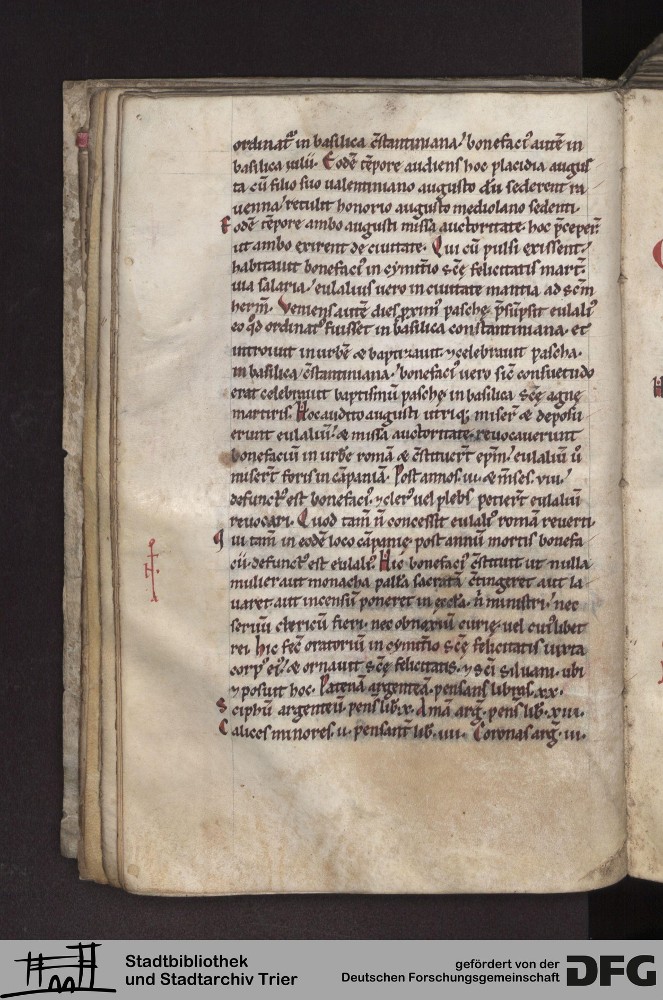 ordinat᷒ in basilica c̄stantiniana. bonefaci᷒ autē in
basilica iulii. Eodē tēpore audiens hoc placidia augus
ta cū filio suo ualentiniano augusto dū sederent ra
uenna. retulit honorio augusto mediolano sedenti.
Eodē tēpore ambo augusti missa auctoritate. hoc p̄ceper̄
ut ambo exirent de ciuitate. Qui cū pulsi exissent.
habitauit bonefaci᷒ in cymit̄io sc̄ę felicitatis mart̄.
uia salaria. eulalius uero in ciuitate mantia ad sc̄m
herm̄. Veniens autē dies p̱xim᷒ paschę. p̄sūpsit eulali᷒
eo qđ ordinat᷒ fuisset in basilica constantiniana. et
introiuit in urbē & baptizauit. ⁊ celebrauit pascha.
in basilica c̄stantiniana. bonefaci᷒ uero sic̄ consuetudo
erat celebrauit baptismū paschę in basilica sc̄ę agnę
martiris. Hoc audito augusti utriq; miser̄ & deposu
erunt eulaliū. & missa auctoritate. reuocauerunt
bonefaciū in urbē romā & c̄stituer̄t ep̄m. eulaliū ū
miser̄t foris in cāpaniā. Post annos .iii. & m̄ses .viii.
defunct᷒ est bonefaci᷒. ⁊ cler᷒ uel plebs petier̄t eulaliū
reuocari. Quod tam̄ n̄ concessit eulali᷒ romā reuerti.
Qui tam̄ in eodē loco cāpanię post annū mortis bonefa
cii. defunct᷒ est eulali᷒. Hic bonefaci᷒ c̄stituit ut nulla
mulier aut monacha pallā sacratā c̄tingeret aut la
uaret. aut incensū poneret in ecc̄la. n̄ ministri. nec
seruū clericum fieri. nec obnoxiū curię. uel cui᷒libet
rei. Hic fec̄ oratoriū in cymit̄io sc̄ę felicitatis iuxta
corp᷒ ei᷒. & ornauit sc̄ę felicitatis. ⁊ sc̄i siluani. ubi
⁊ posuit hoc. Patenā argenteā. pensans libras .xx.
Sciphū argenteū pens lib̄ .x. Amā arg̅. pens lib̄. xiii.
Calices minores .ii. pensant̄ lib̄. iiii. Coronas arg̅. iii.
Stadtbibliothek
und Stadtarchiv Trier
gefördert von der
Deutschen Forschungsgemeinschaft
DFG